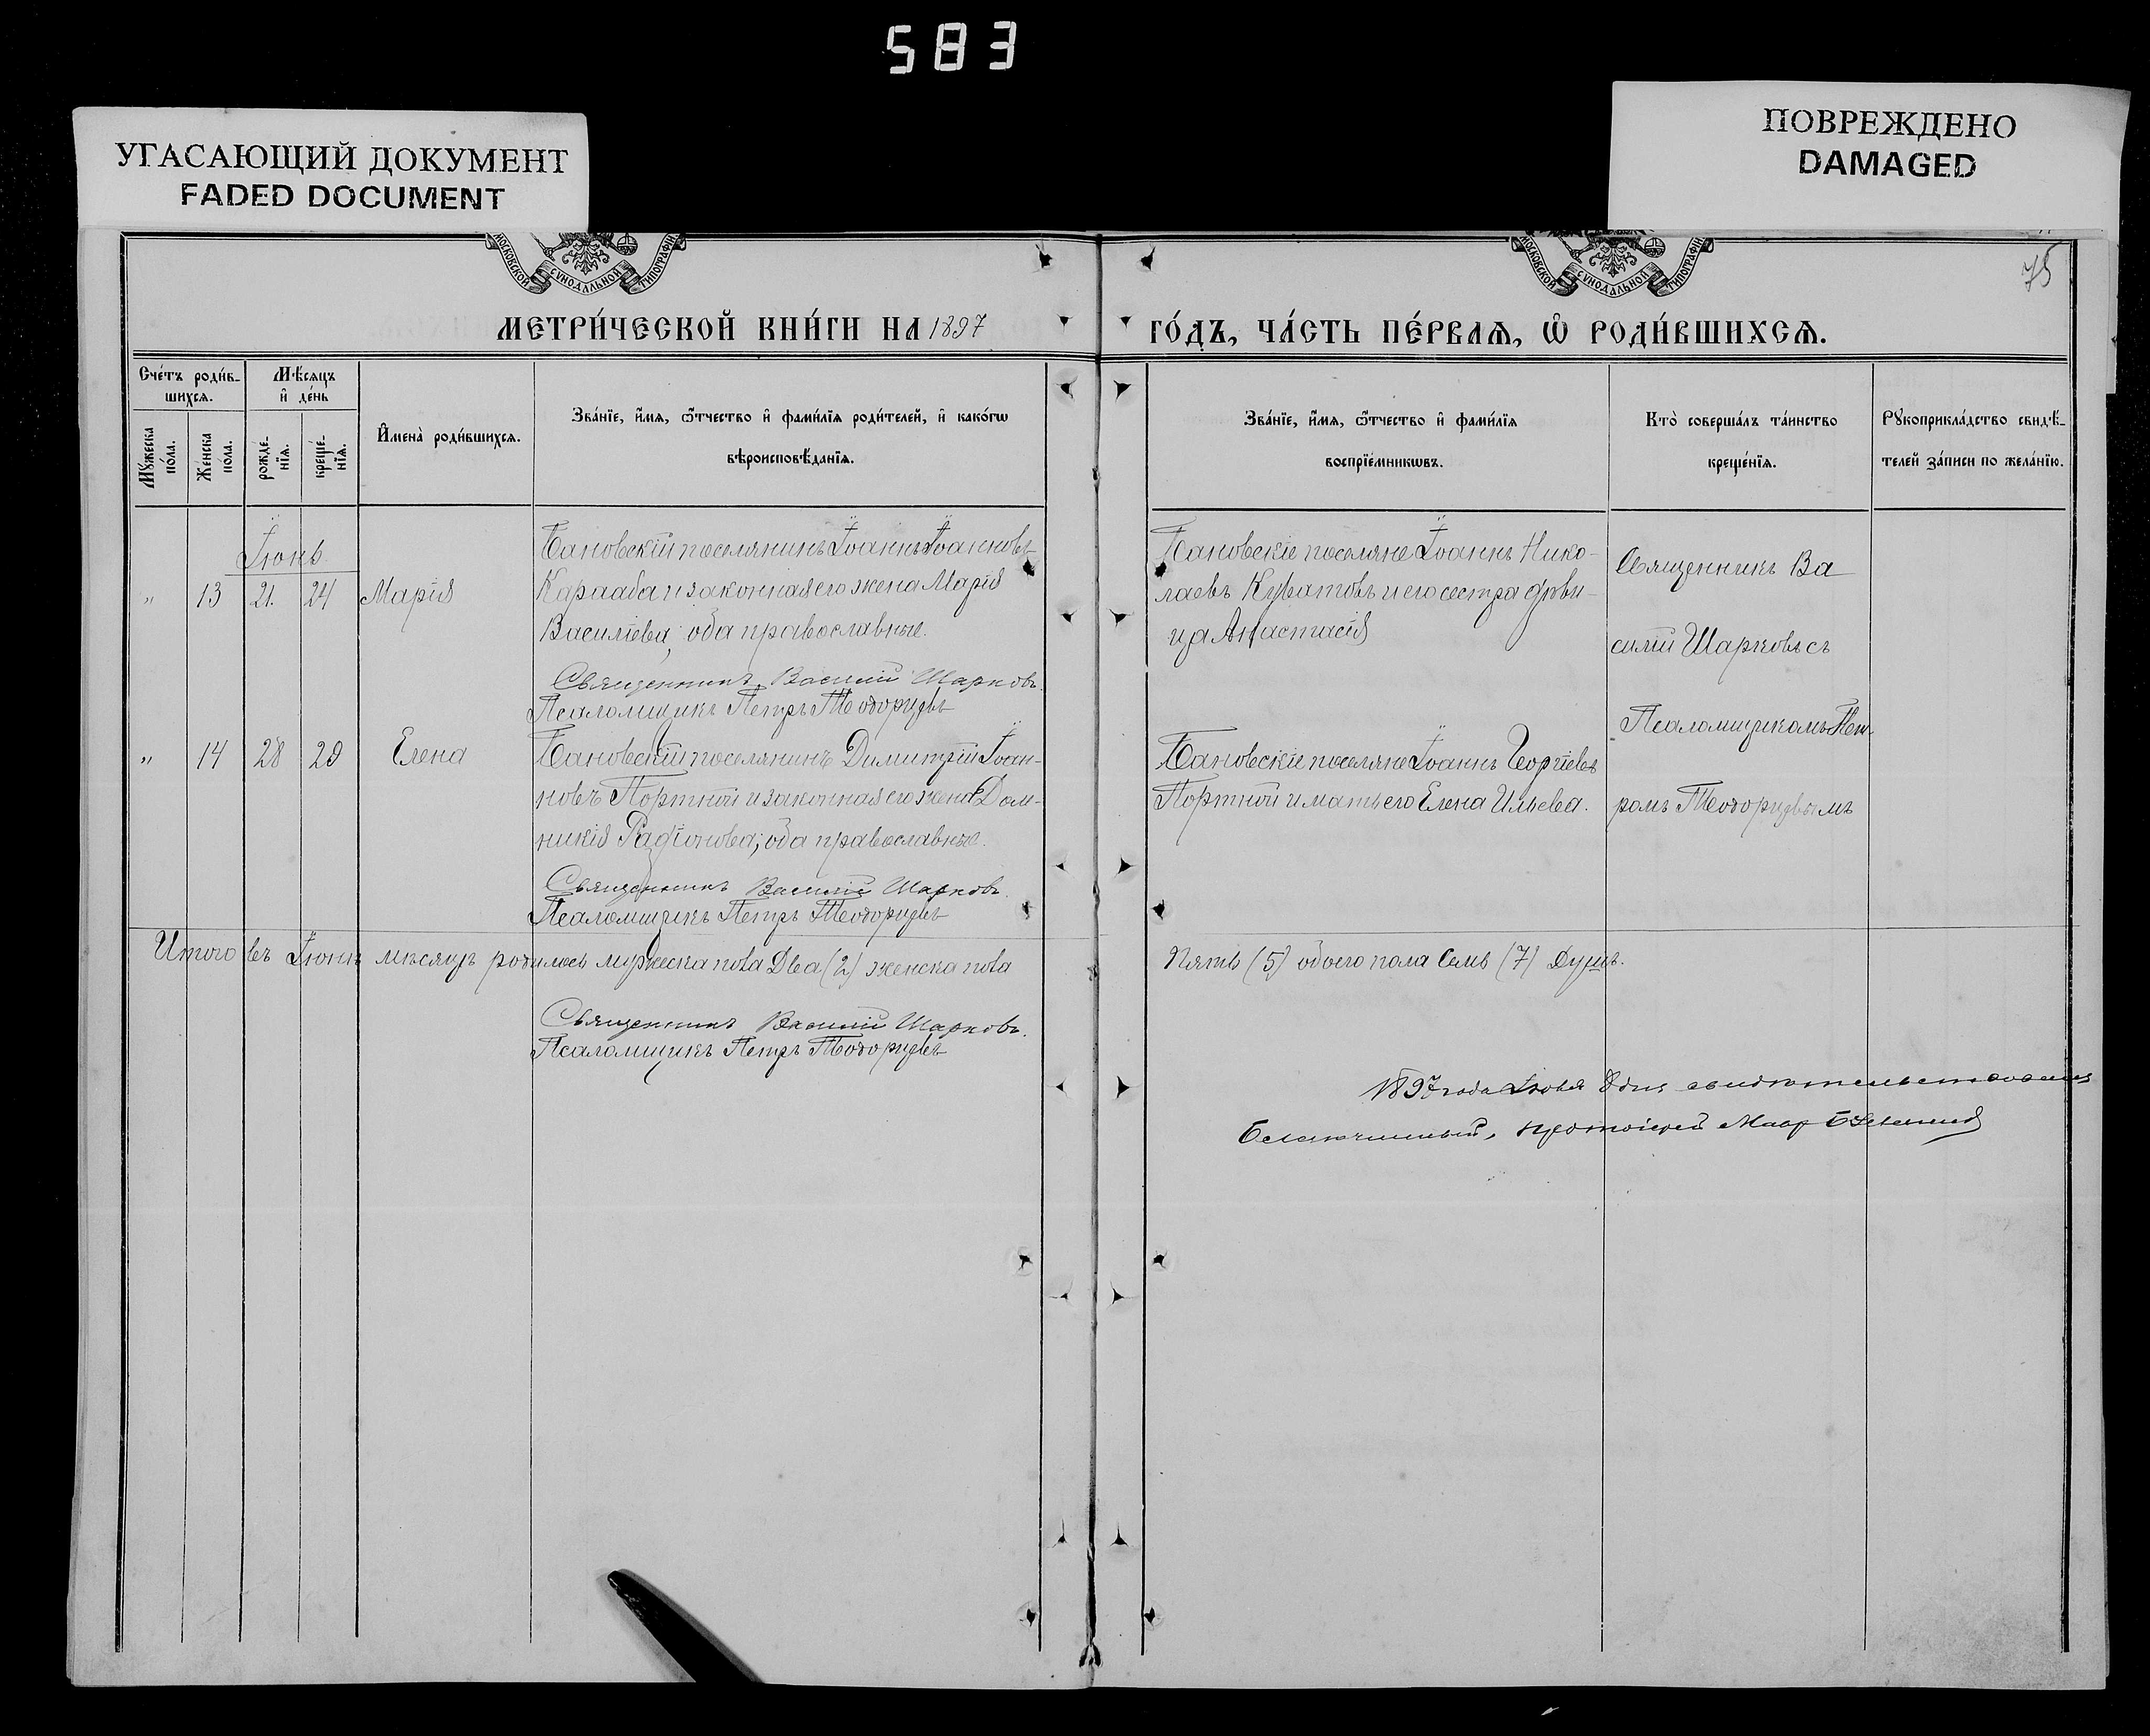 583
УГАСАЮЩИЙ ДОКУМЕНТ
FADED DOCUMENT
ПОВРЕЖДЕНО
DAMAGED
МОСКОВСКОЙ СѴНОДАЛЬНОЙ ТИПОГРАФІИ
МОСКОВСКОЙ СѴНОДАЛЬНОЙ ТИПОГРАФІИ
75
МЕТРИ́ЧЕСКОЙ КНИ́ГИ НА 1897
ГО́ДЪ, ЧА́СТЬ ПЕ́РВАѦ, Ѡ҆ РОДИ́ВШИХСѦ.
Сче́тъ роди́в-
шихсѧ.
Мѣ́сѧцъ
и҆ де́нь
Мꙋ́жеска по́ла.
Же́нска по́ла.
рожде́-нїѧ.
креще́-нїѧ.
И҆мена̀ роди́вшихсѧ.
Зва́нїе, и҆́мѧ, ѻ҆́тчество и҆ фами́лїѧ роди́телей, и҆ како́гѡ
вѣроисповѣ́данїѧ.
Зва́нїе, и҆́мѧ, ѻ҆́тчество и҆ фами́лїѧ
воспрїе́мникѡвъ.
Кто̀ соверша́лъ та́инство
креще́нїѧ.
Рꙋкоприкла́дство свидѣ́-
телей за́писи по жела́нїю.
Іюнь
„ 13 21. 24 Марія
Бановскій поселянинъ Іоаннъ Іоанновъ
Карааба и законная его жена Марія
Василіева; оба православные.
Священникъ Василій Шарковъ.
Псаломщикъ Петръ
Бановскіе поселяне Іоаннъ Нико-
лаевъ и его сестра дѣви-
ца Анастасія
Священникъ Ва
силій Шарковъ съ
Псаломщикомъ Пет-
ромъ
„ 14 28 29 Елена
Бановскій поселянинъ Димитрій Іоан-
новъ Портной и законная его жена Дом-
никія Радіонова; оба православные.
Священникъ Василій Шарковъ.
Псаломщикъ Петръ
Бановскіе поселяне Іоаннъ Георгіевъ
Портной и мать его Елена Ильева.
Итого въ Іюнѣ мѣсяцѣ родилось мужеска пола Два (2) женска пола
Пять (5) обоего пола Семь (7) Душъ.
Священникъ Василій Шарковъ.
Псаломщикъ Петръ
1897 года 8 дня
Благочинный, протоіерей